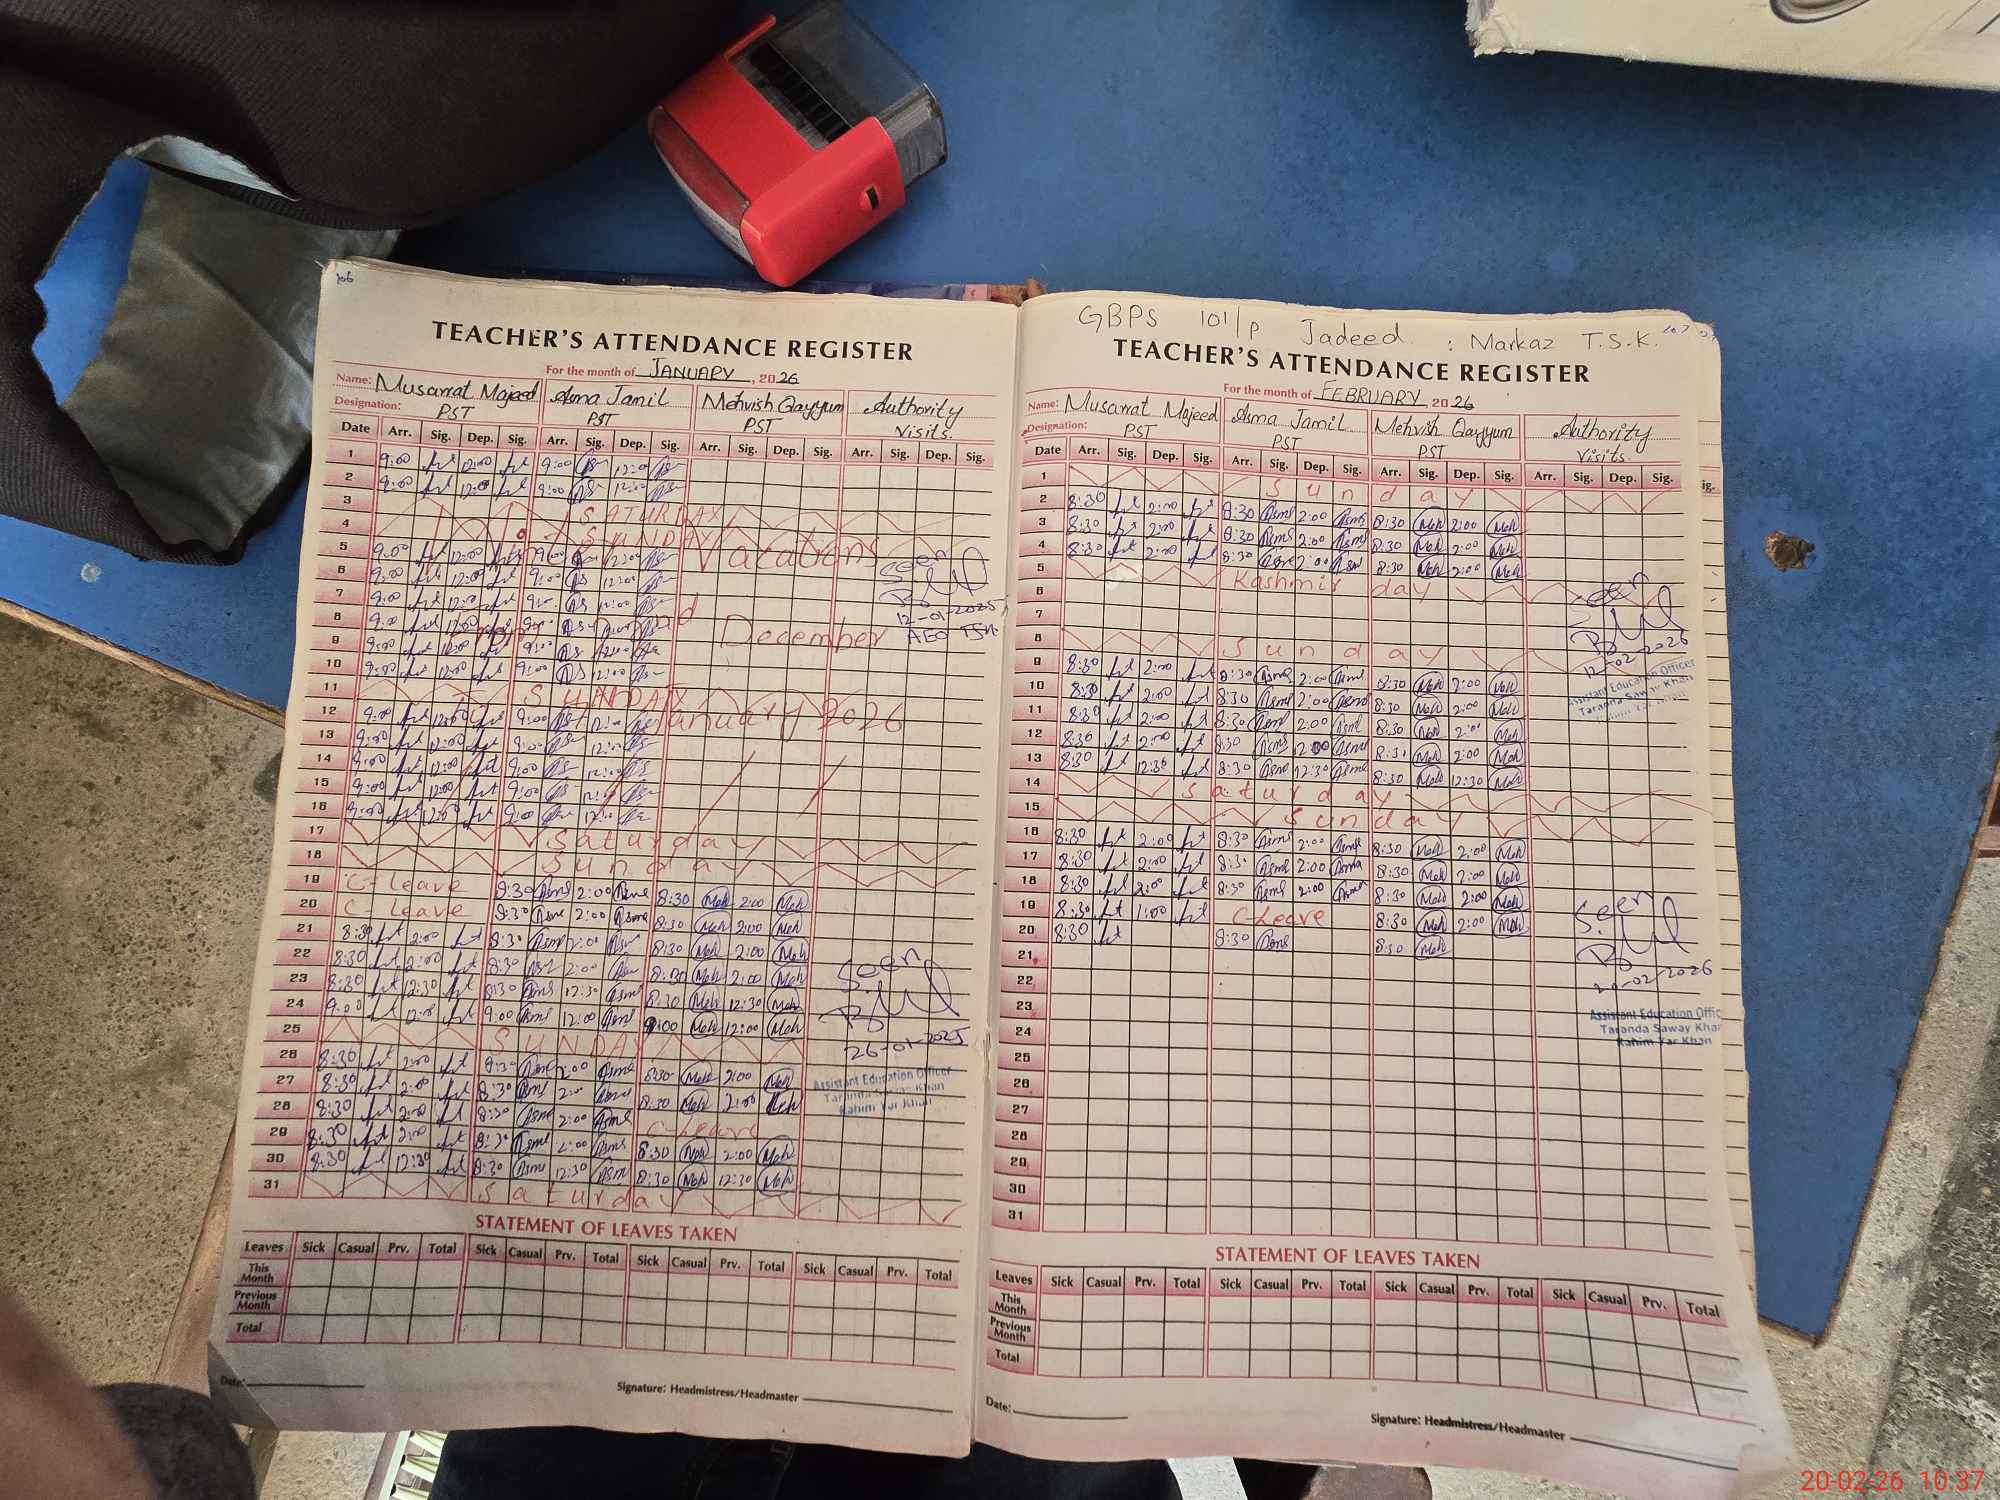 106
TEACHER'S ATTENDANCE REGISTER
For the month of JANUARY, 2026
Name: Musarrat Majeed Asma Jamil Mehvish Qayyum Authority
Designation: PST PST PST Visits.
Date Arr. Sig. Dep. Sig. Arr. Sig. Dep. Sig. Arr. Sig. Dep. Sig. Arr. Sig. Dep. Sig.
1 9:00 12:00 9:00 12:00
2 9:00 12:00 9:00 12:00
3 SATURDAY
4 SUNDAY
5 9:00 12:00 9:00 12:00 Vacations
6 9:00 12:00 9:00 12:00 Seen
7 9:00 12:00 9:00 12:00
8 9:00 12:00 9:00 12:00 12-01-2025
9 9:00 12:00 9:00 12:00 December AEO TSK
10 9:00 12:00 9:00 12:00
11 SUNDAY
12 9:00 12:00 9:00 12:00 January 2026
13 9:00 12:00 9:00 12:00
14 9:00 12:00 9:00 12:00
15 9:00 12:00 9:00 12:00
16 9:00 12:00 9:00 12:00
17 Saturday
18 Sunday
19 C-leave 8:30 Asma 2:00 Asma 8:30 Meh 2:00 Meh
20 C-leave 8:30 Asma 2:00 Asma 8:30 Meh 2:00 Meh
21 8:30 2:00 8:30 Asma 2:00 8:30 Meh 2:00 Meh
22 8:30 2:00 8:30 2:00 8:30 Meh 2:00 Meh Seen
23 8:30 12:30 8:30 Asma 12:30 Asma 8:30 Meh 12:30 Meh
24 9:00 12:00 9:00 Asma 12:00 Asma 9:00 Meh 12:00 Meh
25 SUNDAY 26-01-2025
26 8:30 2:00 8:30 2:00 Asma 8:30 Meh 2:00 Meh
27 8:30 2:00 8:30 Asma 2:00 Asma 8:30 Meh 2:00 Meh
Assistant Education Officer
Taranda Saway Khan
Rahim Yar Khan
28 8:30 2:00 8:30 Asma 2:00 Asma C-Leave
29 8:30 2:00 8:30 Asma 2:00 Asma 8:30 Meh 2:00 Meh
30 8:30 12:30 8:30 Asma 12:30 Asma 8:30 Meh 12:30 Meh
31 Saturday
STATEMENT OF LEAVES TAKEN
Leaves Sick Casual Prv. Total Sick Casual Prv. Total Sick Casual Prv. Total Sick Casual Prv. Total
This Month
Previous Month
Total
Date:
Signature: Headmistress/Headmaster
GBPS 101/P Jadeed : Markaz T.S.K. 107
TEACHER'S ATTENDANCE REGISTER
For the month of FEBRUARY, 2026
Name: Musarrat Majeed Asma Jamil Mehvish Qayyum Authority
Designation: PST PST PST Visits.
Date Arr. Sig. Dep. Sig. Arr. Sig. Dep. Sig. Arr. Sig. Dep. Sig. Arr. Sig. Dep. Sig.
1 Sunday
2 8:30 2:00 8:30 Asma 2:00 Asma 8:30 Meh 2:00 Meh
3 8:30 2:00 8:30 Asma 2:00 Asma 8:30 Meh 2:00 Meh
4 8:30 2:00 8:30 Asma 2:00 Asma 8:30 Meh 2:00 Meh
5 Kashmir day
6 Seen
7
8 Sunday 12-02-2026
9 8:30 2:00 8:30 Asma 2:00 Asma 8:30 Meh 2:00 Meh
Assistant Education Officer
Taranda Saway Khan
Rahim Yar Khan
10 8:30 2:00 8:30 Asma 2:00 Asma 8:30 Meh 2:00 Meh
11 8:30 2:00 8:30 Asma 2:00 Asma 8:30 Meh 2:00 Meh
12 8:30 2:00 8:30 Asma 2:00 Asma 8:30 Meh 2:00 Meh
13 8:30 12:30 8:30 Asma 12:30 Asma 8:30 Meh 12:30 Meh
14 Saturday
15 Sunday
16 8:30 2:00 8:30 Asma 2:00 Asma 8:30 Meh 2:00 Meh
17 8:30 2:00 8:30 Asma 2:00 Asma 8:30 Meh 2:00 Meh
18 8:30 2:00 8:30 Asma 2:00 Asma 8:30 Meh 2:00 Meh
19 8:30 1:00 C-Leave 8:30 Meh 2:00 Meh Seen
20 8:30 8:30 Asma 8:30 Meh
21
22 20-02-2026
23 Assistant Education Offic
Taranda Saway Khan
24 Rahim Yar Khan
25
26
27
28
29
30
31
STATEMENT OF LEAVES TAKEN
Leaves Sick Casual Prv. Total Sick Casual Prv. Total Sick Casual Prv. Total Sick Casual Prv. Total
This Month
Previous Month
Total
Date:
Signature: Headmistress/Headmaster
20-02-26 10:37